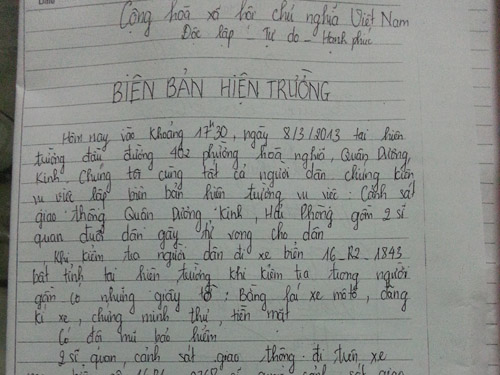 Cộng hoà xã hội chủ nghĩa Việt Nam
Độc lập - Tự do - Hạnh phúc
BIÊN BẢN HIỆN TRƯỜNG
Hôm nay vào khoảng 17h30, ngày 8/3/2013 tại hiện
trường đầu đường 402 phường hoà nghĩa, Quận Dương,
Kinh. Chúng tôi cùng tất cả người dân chứng kiến
vụ việc lập biên bản hiện trường vụ việc: Cảnh sát
giao thông Quận Dương Kinh, Hải Phòng gồm 2 sĩ
quan đuổi dân gây tử vong cho dân
Khi kiểm tra người dân đi xe biển 16-R2-1843
bất tỉnh tại hiện trường khi kiểm tra trong người
gồm có những giấy tờ: Bằng lái xe môtô, đăng
kí xe, chứng minh thư, tiền mặt
Có đội mũ bảo hiểm
2 sĩ quan, cảnh sát giao thông đi trên xe